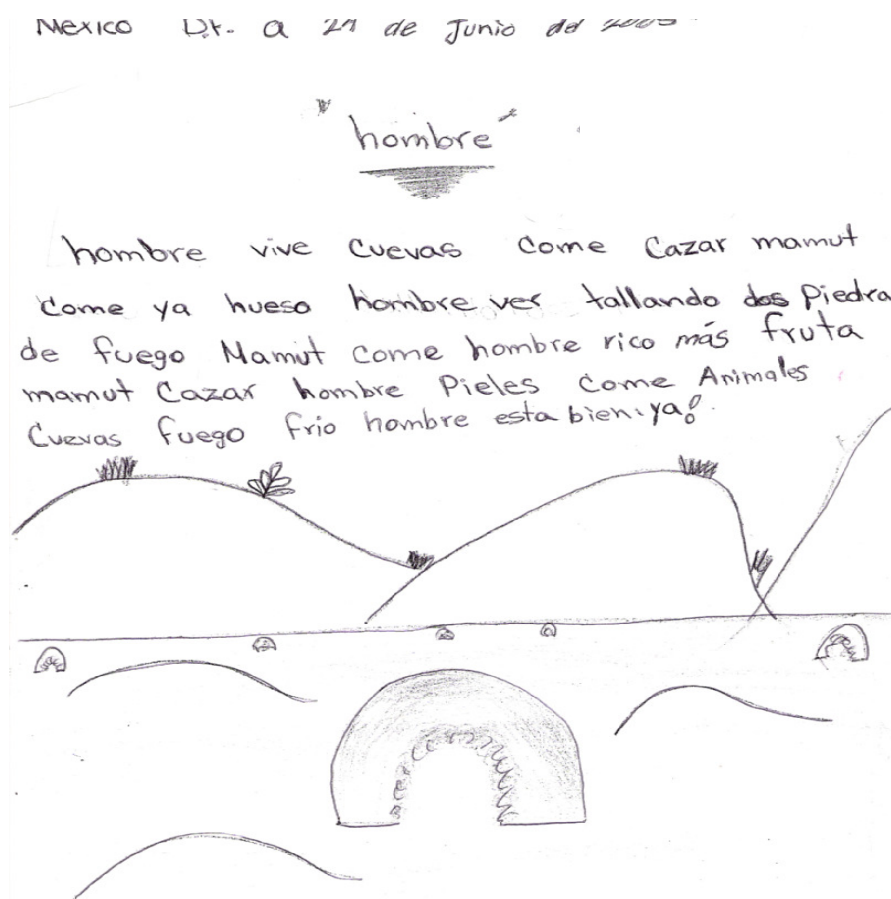 Mexico D.F. a 29 de Junio del 2005
"hombre"
hombre vive Cuevas Come Cazar mamut
Come ya hueso hombre ver tallando dos Piedra
de fuego Mamut come hombre rico más fruta
mamut Cazar hombre Pieles Come Animales
Cuevas fuego frio hombre esta bien ya!